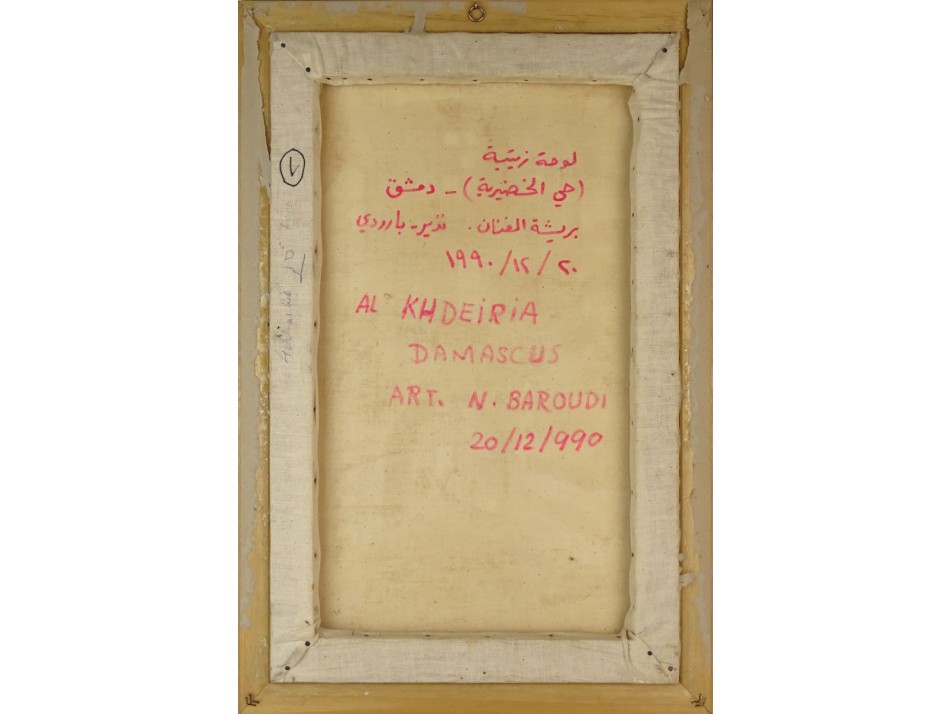 لوحة زيتية
(حي الخضيرية) - دمشق
بريشة الفنان. نذير - بارودي
٢٠/١٢/١٩٩٠
AL KHDEIRIA
DAMASCUS
ART. N. BAROUDI
20/12/990